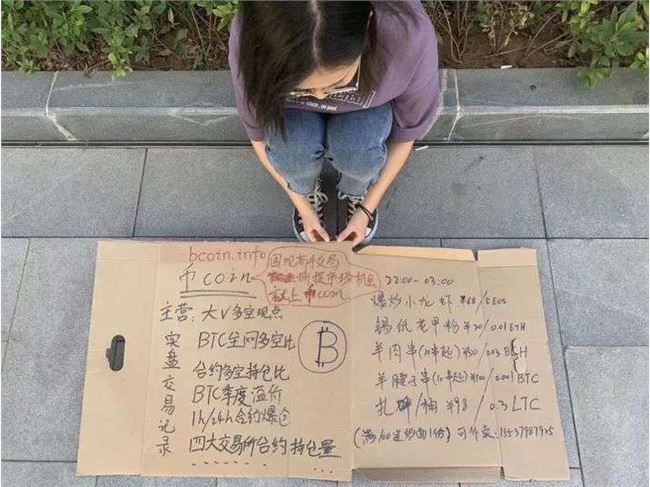 bcoin.info
币coin
围观高手交易
捕捉市场机会
就上币coin
主营：大V多空观点
实盘交易记录
BTC全网多空比
合约多空持仓比
BTC季度溢价
1h/24h合约爆仓
四大交易所合约持仓量
₿
22:00-03:00
爆炒小龙虾 ¥68/5EOS
锡纸花甲粉 ¥20/0.01ETH
羊肉串(10串起) ¥50/
羊腰子串(10串起) ¥100/0.001BTC
扎啤/桶 ¥98/0.3LTC
(满100送炒面1份) 可外交: